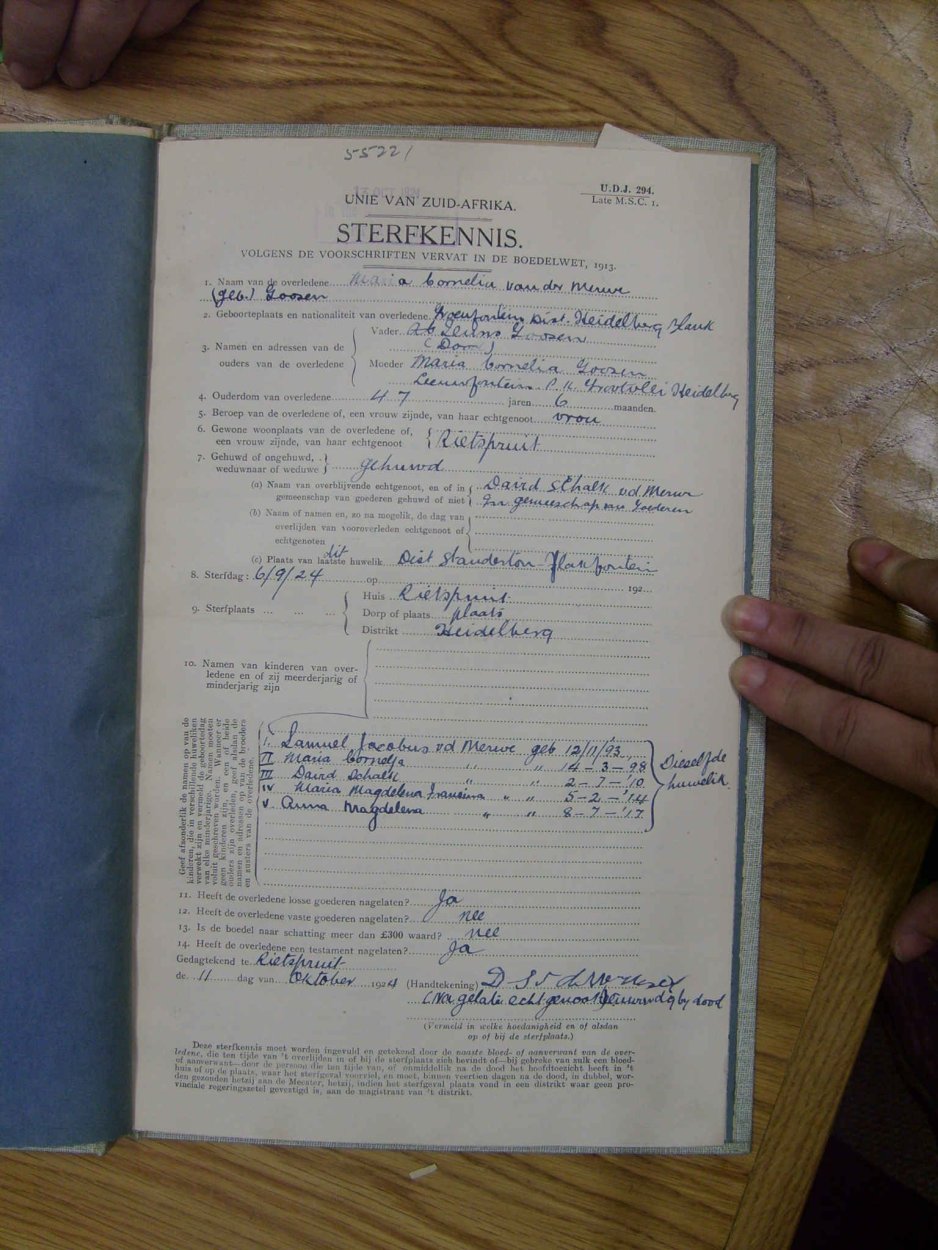 55221
U.D.J. 294.
Late M.S.C. 1.
UNIE VAN ZUID-AFRIKA.
STERFKENNIS.
VOLGENS DE VOORSCHRIFTEN VERVAT IN DE BOEDELWET, 1913.
1. Naam van de overledene Maria Cornelia van der Merwe
(geb.) Goosen
2. Geboorteplaats en nationaliteit van overledene Dist. Heidelberg
3. Namen en adressen van de ouders van de overledene
Vader Goosen
(Dood)
Moeder Maria Cornelia Goosen
Leeuwfontein P.K. Grootvlei Heidelberg
4. Ouderdom van overledene 47 jaren 6 maanden.
5. Beroep van de overledene of, een vrouw zijnde, van haar echtgenoot vrou
6. Gewone woonplaats van de overledene of,
een vrouw zijnde, van haar echtgenoot Rietspruit
7. Gehuwd of ongehuwd,
weduwnaar of weduwe gehuwd
(a) Naam van overblijvende echtgenoot, en of in David Schalk vd Merwe
gemeenschap van goederen gehuwd of niet In gemeeschap van Goederen
(b) Naam of namen en, zo na mogelik, de dag van
overlijden van vooroverleden echtgenoot of
echtgenoten
dit
(c) Plaats van laatste huwelik Dist Standerton Vlakfontein
8. Sterfdag: 6/9/24 op 192
9. Sterfplaats ... ... ...
Huis Rietspruit
Dorp of plaats plaats
Distrikt Heidelberg
10. Namen van kinderen van over-
ledene en of zij meerderjarig of
minderjarig zijn
Geef afzonderlik de namen op van de
kinderen, die in verschillende huweliken
verwekt zijn en vermeld de geboortedag
van elke minderjarige. Namen moeten
voluit geschreven worden. Wanneer er
geen kinderen zijn, en een of beide
ouders zijn overleden, geef alsdan de
namen en adressen op van de broeders
en zusters van de overledene.
I. Samuel Jacobus vd Merwe geb 12/11/93
II Maria Cornelja " " 14-3-98
III David Schalk " " 2-7-'10
IV Maria Magdelena Francina " " 5-2-'14
V Anna Magdelena " " 8-7-'17
Dieselfde
huwelik.
11. Heeft de overledene losse goederen nagelaten? Ja
12. Heeft de overledene vaste goederen nagelaten? nee
13. Is de boedel naar schatting meer dan £300 waard? nee
14. Heeft de overledene een testament nagelaten? Ja
Gedagtekend te Rietspruit
de 11 dag van Oktober 1924 (Handtekening) D S v d Merwe
(Na gelate echtgenoot) by dood
(Vermeld in welke hoedanigheid en of alsdan
op of bij de sterfplaats.)
Deze sterfkennis moet worden ingevuld en getekend door de naaste bloed- of aanverwant van de over-
ledene, die ten tijde van 't overlijden in of bij de sterfplaats zich bevindt of—bij gebreke van zulk een bloed-
of aanverwant—door de persoon die ten tijde van, of onmiddellik na de dood het hoofdtoezicht heeft in 't
huis of op de plaats, waar het sterfgeval voorviel, en moet, binnen veertien dagen na de dood, in dubbel, wor-
den gezonden hetzij aan de Meester, hetzij, indien het sterfgeval plaats vond in een distrikt waar geen pro-
vinciale regeringszetel gevestigd is, aan de magistraat van 't distrikt.